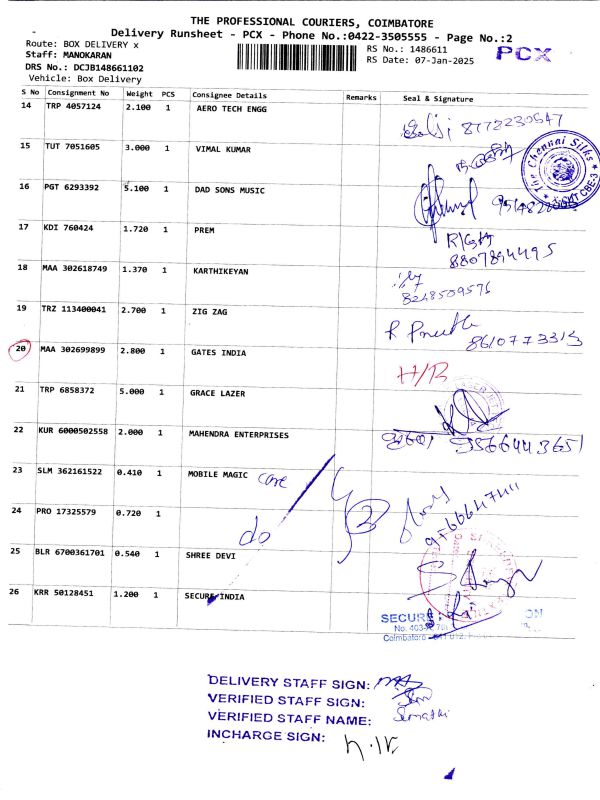 THE PROFESSIONAL COURIERS, COIMBATORE
Delivery Runsheet - PCX - Phone No.:0422-3505555 - Page No.:2
Route: BOX DELIVERY x
RS No.: 1486611
PCX
Staff: MANOKARAN
RS Date: 07-Jan-2025
DRS No.: DCJB148661102
Vehicle: Box Delivery
S No Consignment No Weight PCS Consignee Details Remarks Seal & Signature
14 TRP 4057124 2.100 1 AERO TECH ENGG
15 TUT 7051605 3.000 1 VIMAL KUMAR
The Chennai Silks
CBE-3
16 PGT 6293392 5.100 1 DAD SONS MUSIC
17 KDI 760424 1.720 1 PREM
8807894495
18 MAA 302618749 1.370 1 KARTHIKEYAN
8248509576
19 TRZ 113400041 2.700 1 ZIG ZAG
8610773313
20 MAA 302699899 2.800 1 GATES INDIA H/B
21 TRP 6858372 5.000 1 GRACE LAZER
22 KUR 6000502558 2.000 1 MAHENDRA ENTERPRISES
9566443651
23 SLM 362161522 0.410 1 MOBILE MAGIC care
24 PRO 17325579 0.720 1 do
25 BLR 6700361701 0.540 1 SHREE DEVI
26 KRR 50128451 1.200 1 SECURE INDIA
SECURE
Coimbatore
DELIVERY STAFF SIGN:
VERIFIED STAFF SIGN:
VERIFIED STAFF NAME:
INCHARGE SIGN: